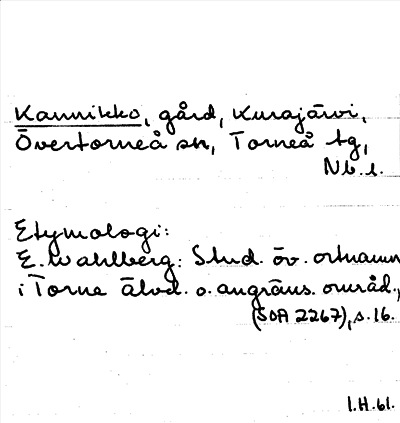 Kannikko, gård, Kurajärvi,
Övertorneå sn, Torneå tg,
Nb. l.
Etymologi:
E. Wahlberg: Stud. öv. ortnamn
i Torne älvd. o. angräns. områd.,
(SOA 2267), s. 16.
1.H.61.